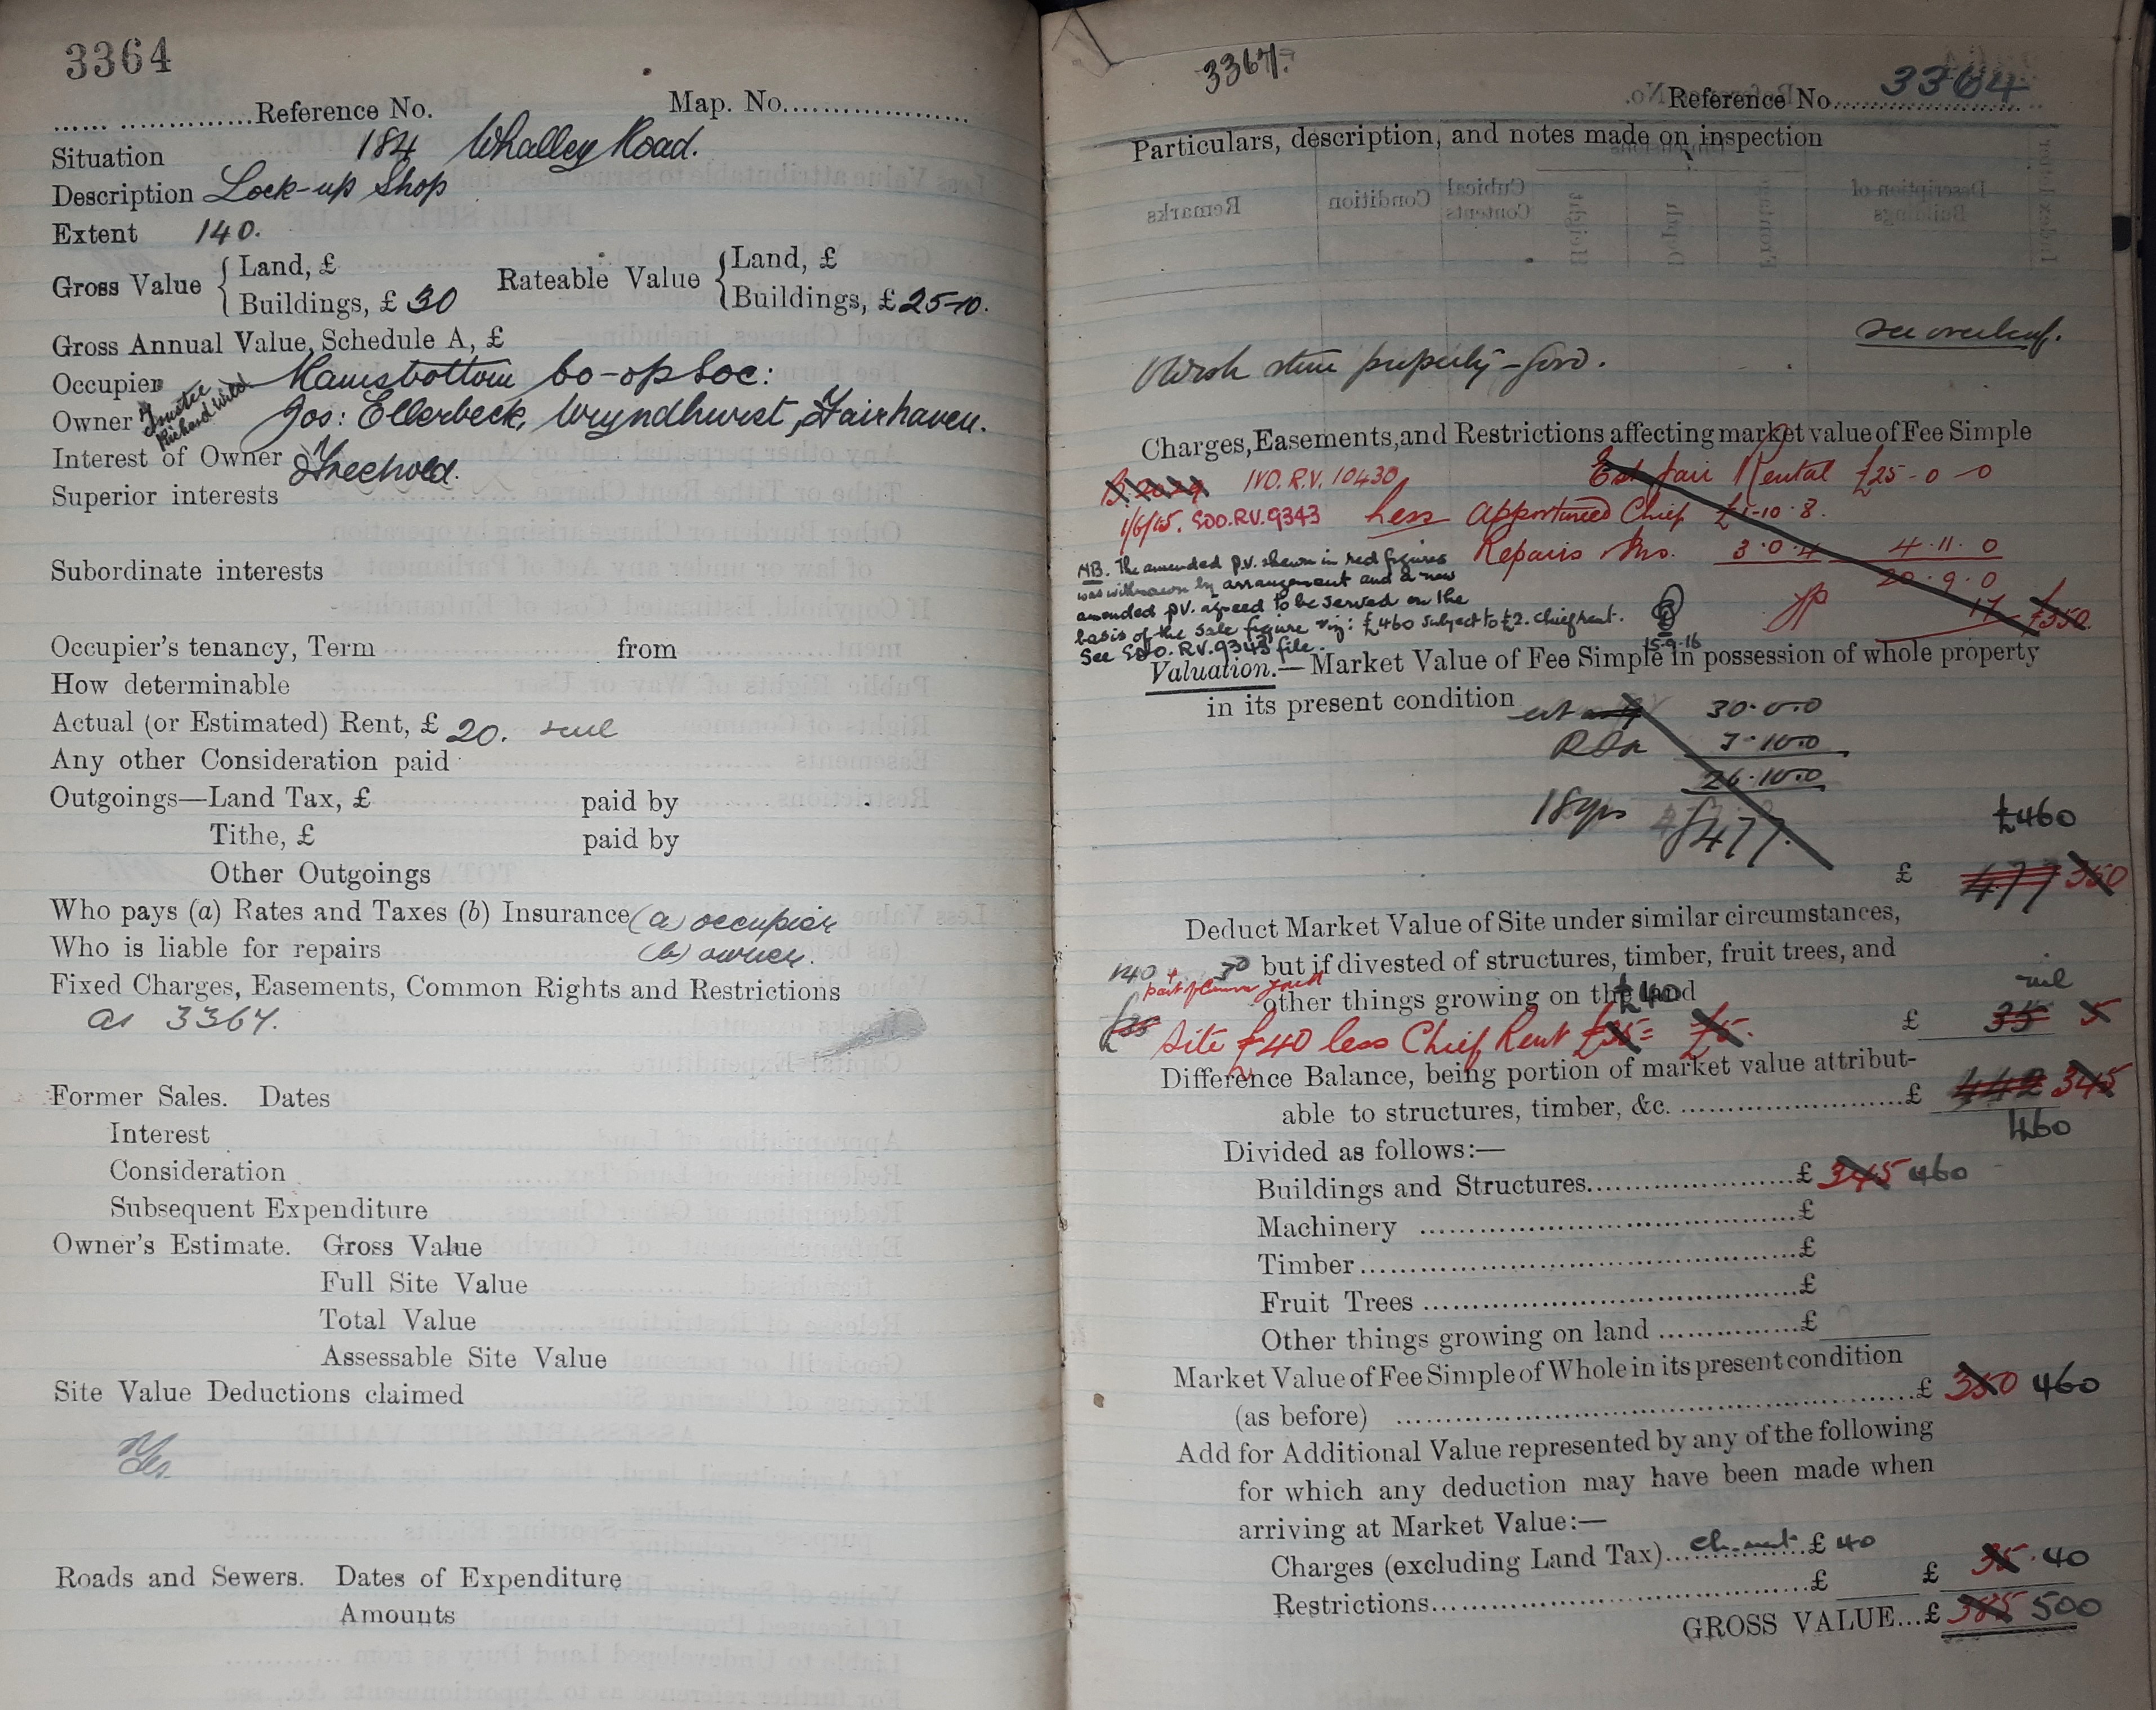 3364
Reference No. Map. No.
Situation 184 Whalley Road.
Description Lock-up Shop
Extent 140.
Gross Value { Land, £ Rateable Value { Land, £
Buildings, £ 30 Buildings, £ 25-10.
Gross Annual Value, Schedule A, £
Occupier Ramsbottom Co-op Soc:
Owner Trustee Richard Wild Jos: Ellerbeck, Wyndhurst, Fairhaven.
Interest of Owner Freehold.
Superior interests
Subordinate interests
Occupier's tenancy, Term from
How determinable
Actual (or Estimated) Rent, £ 20.
Any other Consideration paid
Outgoings—Land Tax, £ paid by
Tithe, £ paid by
Other Outgoings
Who pays (a) Rates and Taxes (b) Insurance (a) occupier
Who is liable for repairs (b) owner.
Fixed Charges, Easements, Common Rights and Restrictions
as 3367.
Former Sales. Dates
Interest
Consideration
Subsequent Expenditure
Owner's Estimate. Gross Value
Full Site Value
Total Value
Assessable Site Value
Site Value Deductions claimed
Yes.
Roads and Sewers. Dates of Expenditure
Amounts
3367.
Reference No. 3364
Particulars, description, and notes made on inspection
see overleaf.
stone property - good.
Charges, Easements, and Restrictions affecting market value of Fee Simple
B. 2029 IVO. R.V. 10430 Est fair Rental £25-0-0
1/6/15. SDO.RV.9343 Less Apportioned Chief £1-10-8.
Repairs & Ins. 3.0.4 4.11.0
20.9.0
17 £350
NB. The amended p.v. shewn in red figures
was withdrawn by arrangement and a new
amended p.v. agreed to be served on the
basis of the sale figure viz: £460 subject to £2. Chief rent.
See SDO. R.V. 9343 file.
15.9.16
Valuation.— Market Value of Fee Simple in possession of whole property
in its present condition
30.0.0
3.10.0
26.10.0
18 yrs £477.
£460
£ 477 350
Deduct Market Value of Site under similar circumstances,
but if divested of structures, timber, fruit trees, and
other things growing on the land
140
£40
nil
£35
Site £40 less Chief Rent £35 = £5. £ 35 5
Difference Balance, being portion of market value attribut-
able to structures, timber, &c. £ 442 345
460
Divided as follows:—
Buildings and Structures £ 345 460
Machinery £
Timber £
Fruit Trees £
Other things growing on land £
Market Value of Fee Simple of Whole in its present condition
(as before) £ 350 460
Add for Additional Value represented by any of the following
for which any deduction may have been made when
arriving at Market Value:—
Charges (excluding Land Tax) Ch. rent £ 40
Restrictions £ £ 35 40
GROSS VALUE...£ 385 500